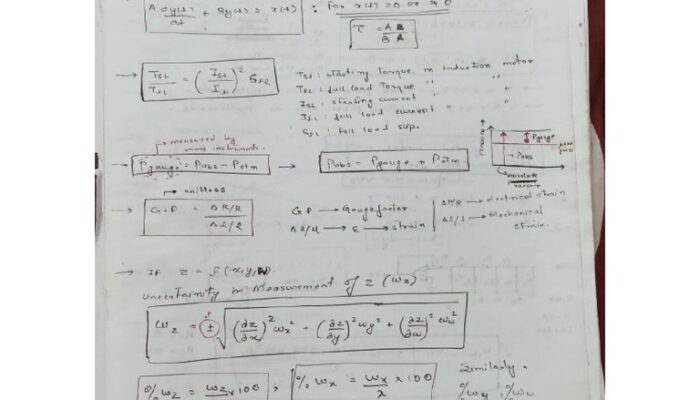 A dy(t)/dt + By(t) = x(t) : For x(t) = 0 or ≠ 0
τ = A/B
→ Tst/Tfl = (Ist/Ifl)² Sfl
Tst : starting Torque in induction motor
Tfl : full load Torque " "
Ist : starting current " "
Ifl : full load current "
Sfl : Full load slip.
→ measured by most instruments.
Pgauge = Pabs - Patm → Pabs = Pgauge + Patm.
Pgauge
Pabs
absolute
→ unitless
→ G.F = ΔR/R / Δl/l
G.F → Gauge factor
Δl/l → ε → strain
ΔR/R → electrical strain
Δl/l → Mechanical strain.
→ If z = f(x,y,w)
uncertainity in Measurement of z (ωz)
ωz = ± √ (∂z/∂x)² ωx² - (∂z/∂y)² ωy² + (∂z/∂w)² ωw²
% ωz = ωz/z × 100 , % ωx = ωx/x × 100
Similarly
% ωy , % ωw